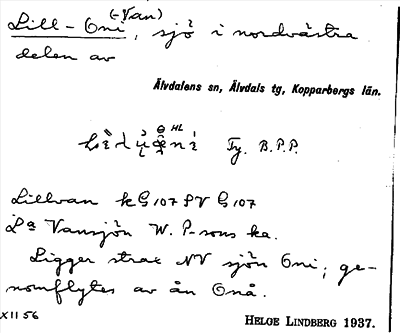 (-Van)
Lill-Oni, sjö i nordvästra
delen av
Älvdalens sn, Älvdals tg, Kopparbergs län.
HL
Ty. B.P.P.
Lillvan k G 107 SV G 107
La Vansjön W. P-sons ka.
Ligger strax NV sjön Oni; ge-
nomflytes av ån Onå.
XII 56
HELGE LINDBERG 1937.